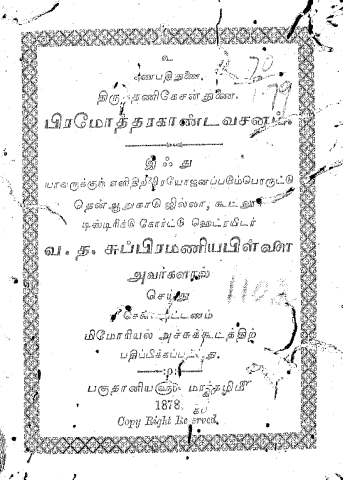 உ
கணபதிதுணை.
திருத்தணிகேசன்துணை.
பிரமோத்தரகாண்டவசனம்.
இஃது
யாவருக்கும் எளிதிற்பிரயோஜனப்படும்பொருட்டு
தென்ஆறுகாடு ஜில்லா, கூடலூர்
டிஸ்டிரிக்டு கோர்ட்டு ஹெட்ரயிடர்
வ. த. சுப்பிரமணியபிள்ளை
அவர்களால்
செய்து
சென்னபட்டணம்
மிமோரியல் அச்சுக்கூடத்திற்
பதிப்பிக்கப்பட்டது.
பகுதானிய௵ மார்கழிமீ
1878
Copy Right Reserved.
1102